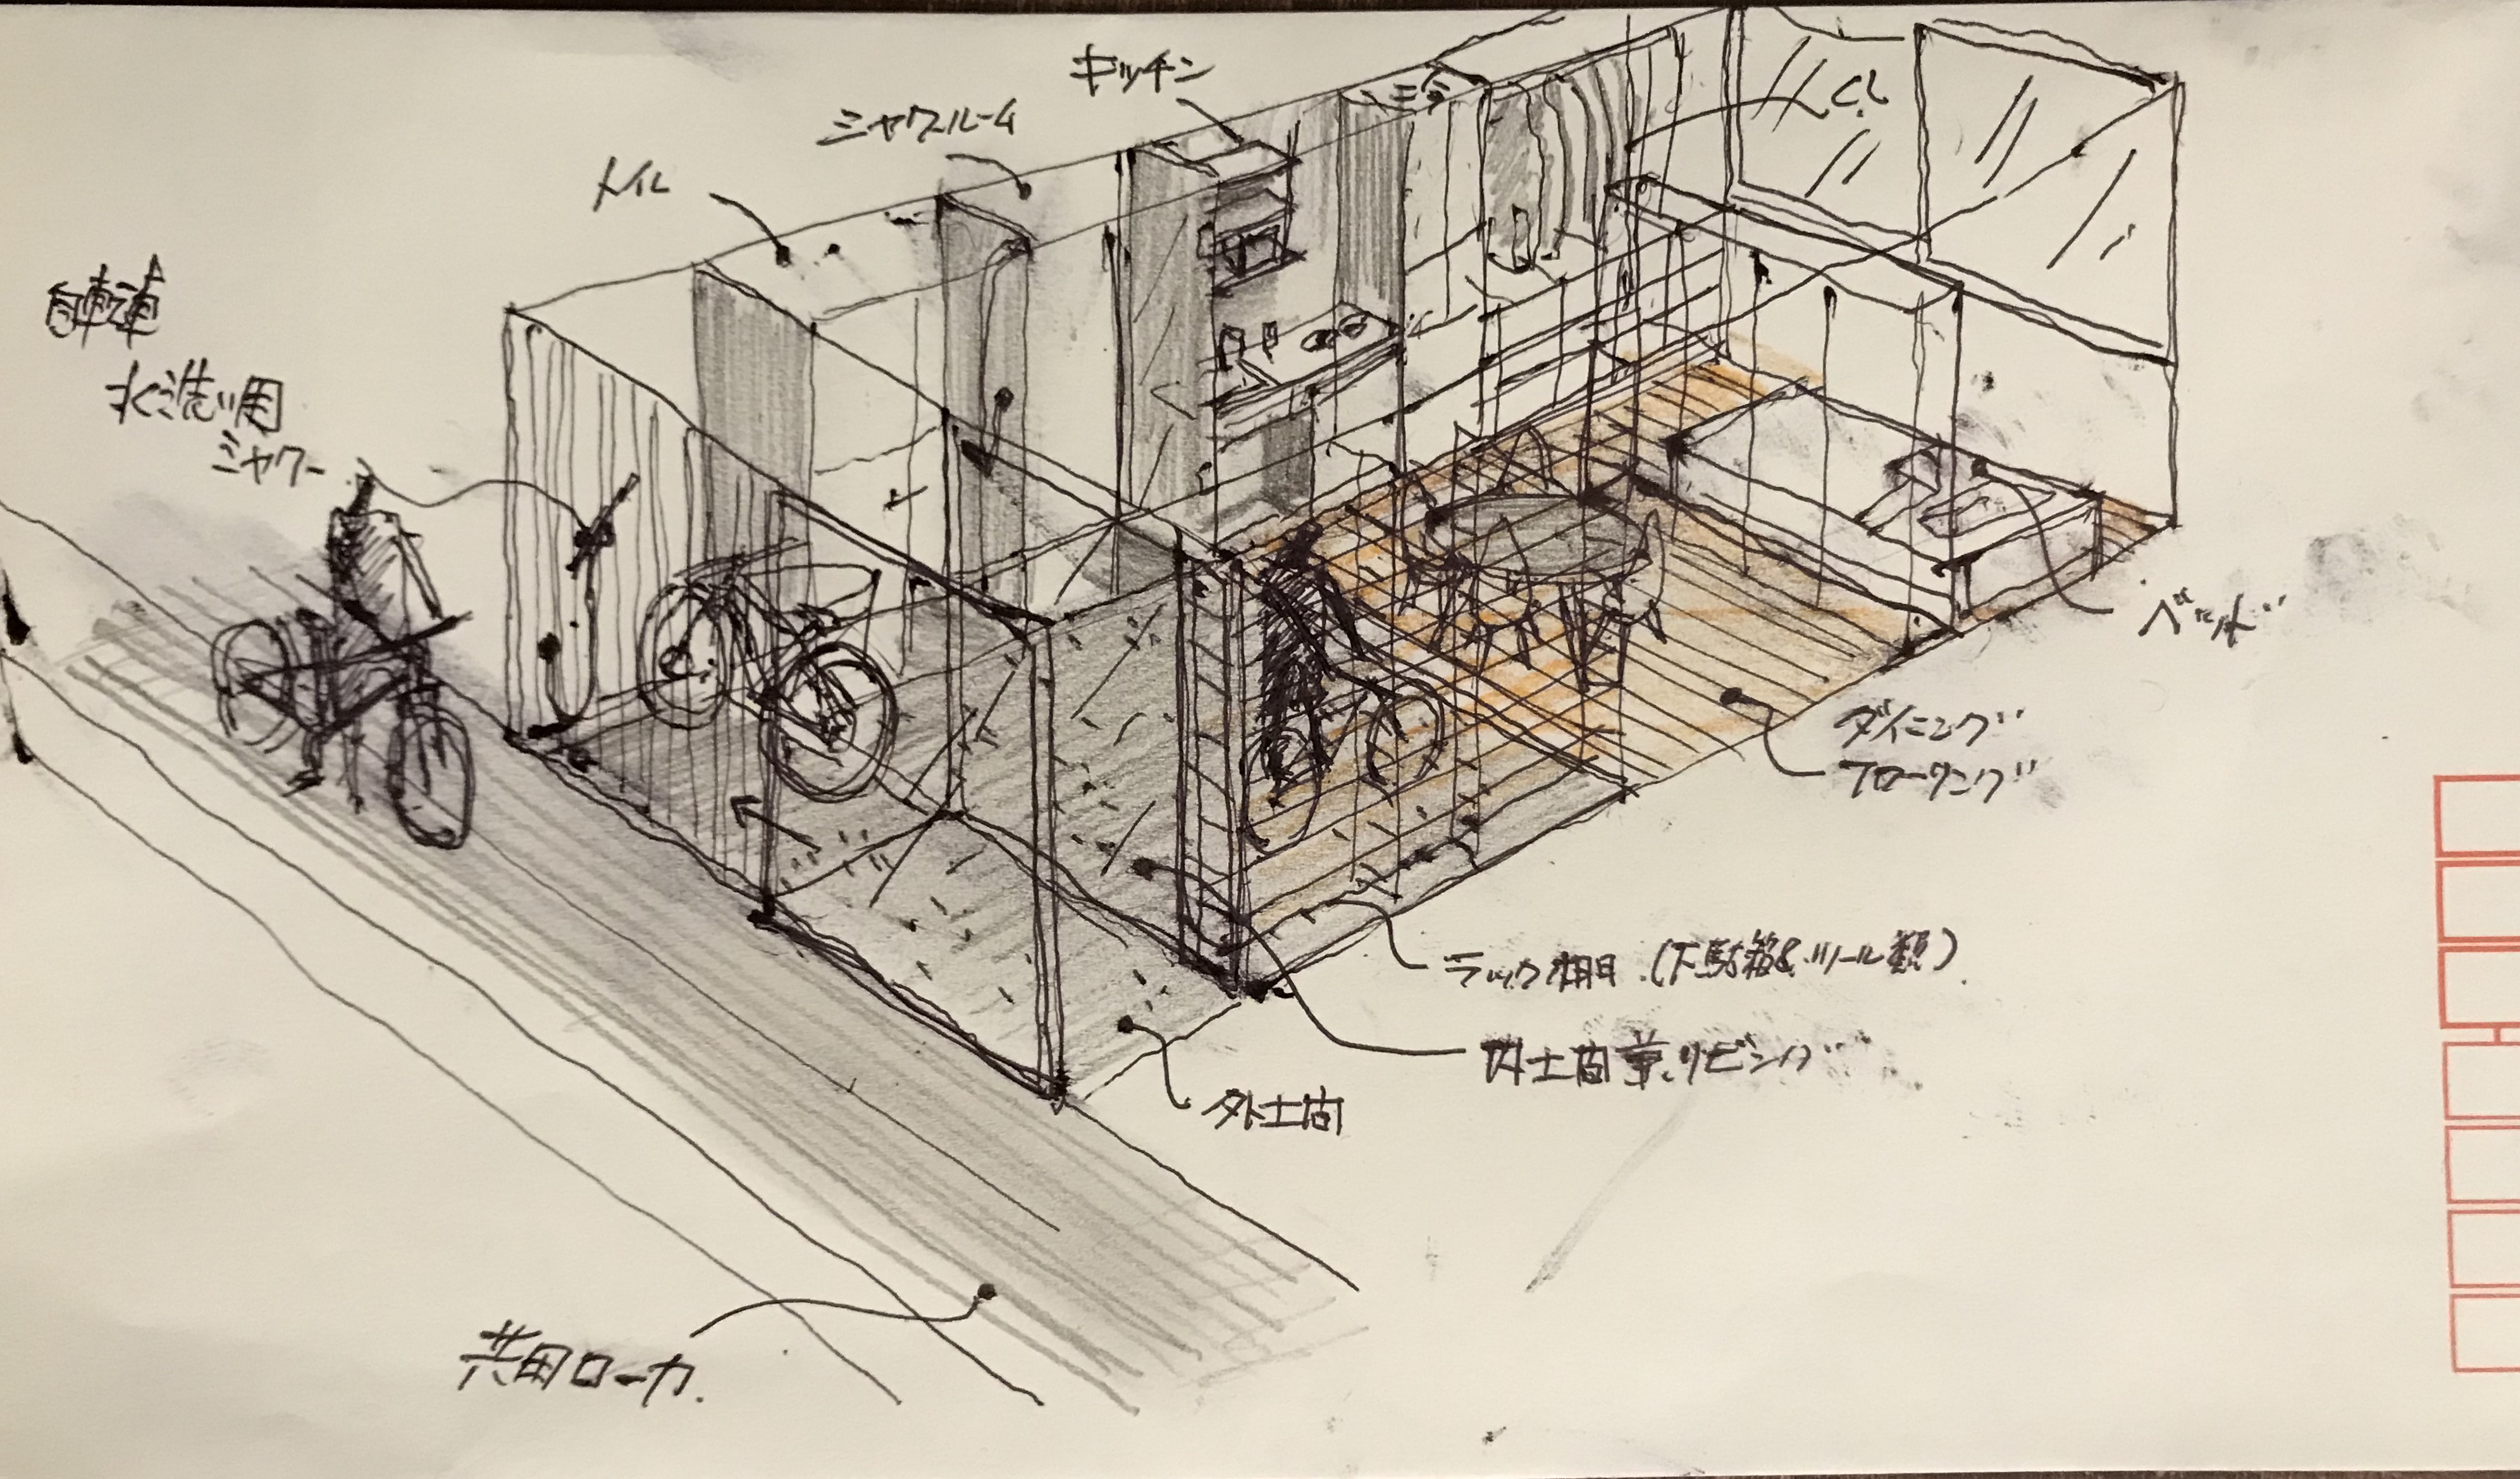 キッチン
シャワールーム
トイレ
CL
自転車
水洗い用
シャワー
ベッド
ダイニング
フローリング
ラック棚.(下駄箱&ツール類).
内土間兼リビング
外土間
共用ローカ.